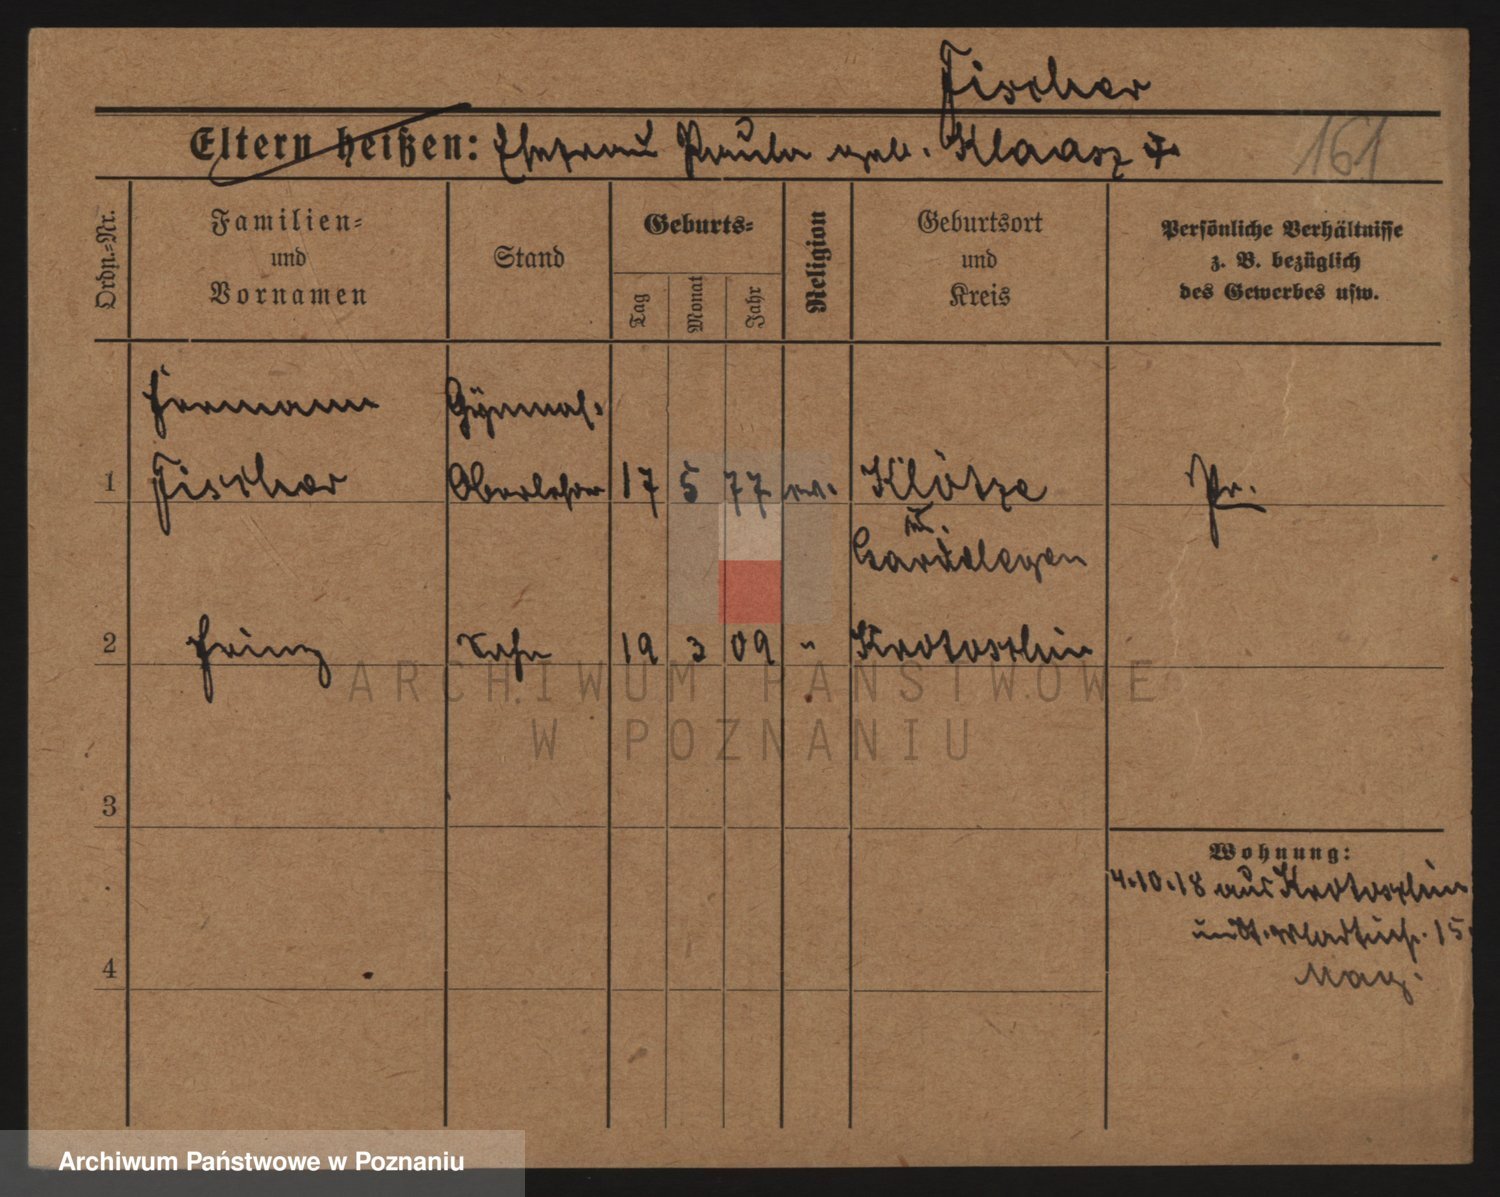 Fischer
Eltern heißen: Ehefrau Paula geb. Klaasz
161
Ordn.-Nr.
Familien-
und
Vornamen
Stand
Geburts-
Tag
Monat
Jahr
Religion
Geburtsort
und
Kreis
Persönliche Verhältnisse
z. B. bezüglich
des Gewerbes usw.
Hermann Gymnas.
1 Fischer Oberlehrer 17 5 77 ev. Klötze Pr.
Gardelegen
2 Sohn 19 3 09 " Krotoschin
ARCHIWUM PAŃSTWOWE
W POZNANIU
3
Wohnung:
4.10.18 aus Krotoschin
15
4
Archiwum Państwowe w Poznaniu